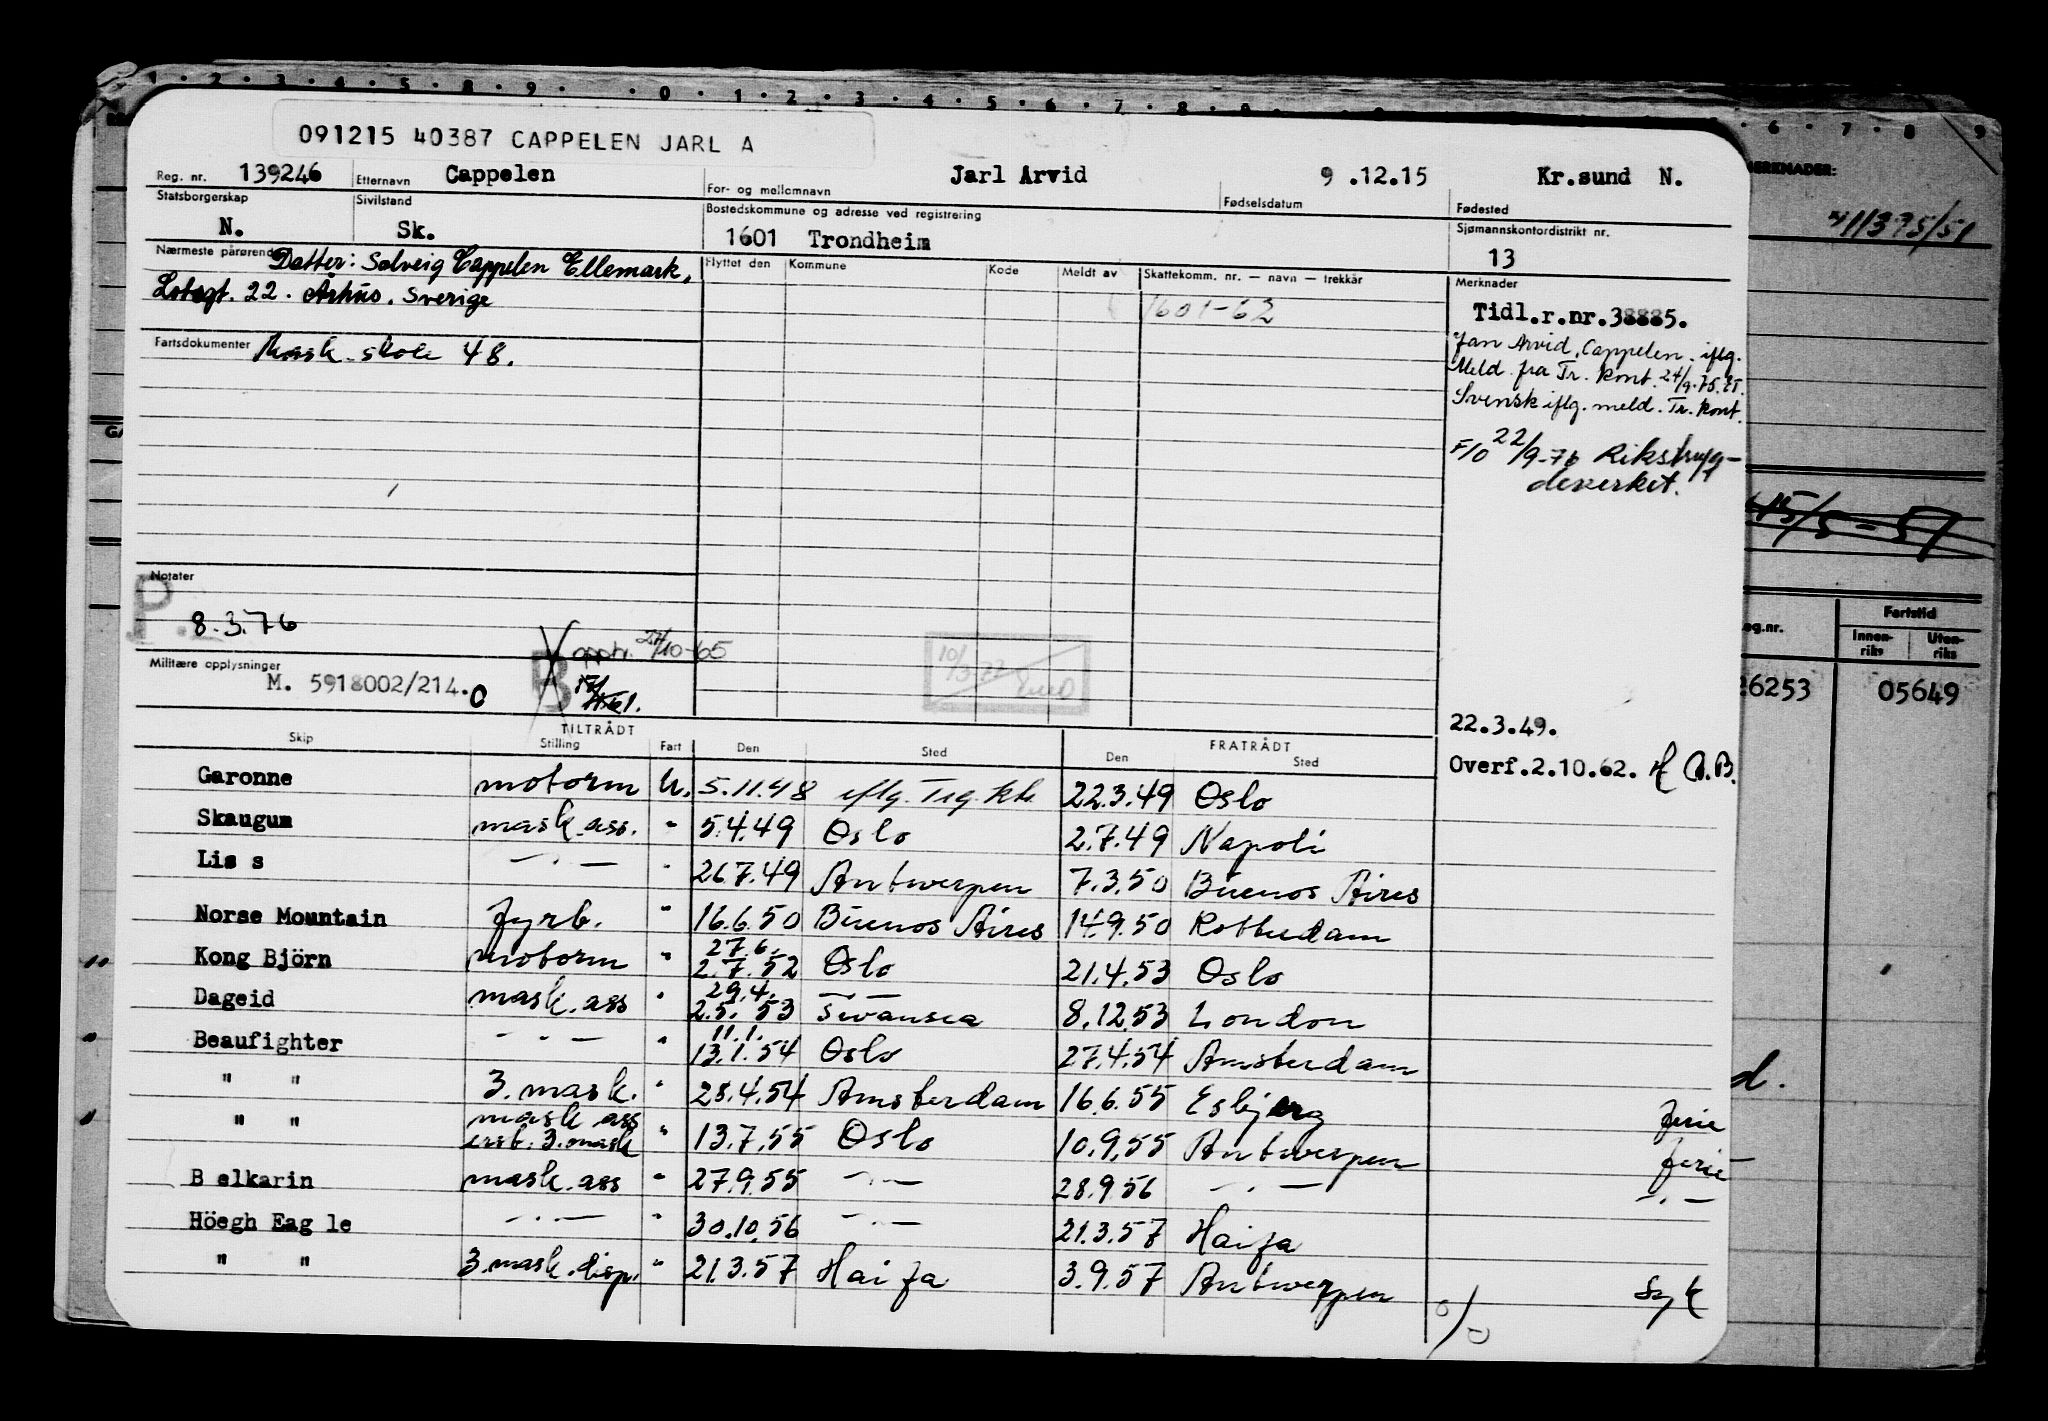 091215 40387 CAPPELEN JARL A
Reg. nr. 139246 Etternavn Cappelen For- og mellomnavn Jarl Arvid 9 .12.15 Kr.sund N.
Statsborgerskap Sivilstand Bostedskommune og adresse ved registrering Fødselsdatum Fødested
N. Sk. 1601 Trondheim Sjømannskontordistrikt nr.
13
Nærmeste pårørende Datter: Solveig Cappelen Ellemark,
22. Århus. Sverige
Flyttet den Kommune Kode Meldt av Skattekomm. nr. — navn — trekkår
1601-62
Merknader
Tidl.r.nr.38885.
Jan Arvid Cappelen. iflg.
Meld. fra Tr. kont. 24/9-75.
Svensk iflg. meld. Tr. kont.
F/O 22/9-76 Rikstryg-
deverket.
Fartsdokumenter Mask. skole 48.
Notater
P
8.3.76
Militære opplysninger
M. 5918002/214.0
B
10-65
22.3.49.
Overf.2.10.62.
TILTRÅDT FRATRÅDT
Skip Stilling Fart Den Sted Den Sted
Garonne motorm U. 5.11.48 iflg. 22.3.49 Oslo
Skaugum mask.ass. " 5.4.49 Oslo 2.7.49 Napoli
Lis s — · — " 26.7.49 Antwerpen 7.3.50 Buenos Aires
Norse Mountain fyrb. " 16.6.50 Buenos Aires 14.9.50 Rotterdam
Kong Björn motorm " 27.6. 2.7.52 Oslo 21.4.53 Oslo
Dageid mask.ass " 29.4. 2.5.53 — · — Swansea 8.12.53 London
Beaufighter — · — " 11.1. 13.1.54 Oslo 27.4.54 Amsterdam
" " 3.mask. " 28.4.54 Amsterdam 16.6.55 Esbjerg Ferie
" " mask ass erst. 3.mask " 13.7.55 Oslo 10.9.55 Antwerpen ferie
B elkarin mask.ass " 27.9.55 — · — 28.9.56 — · — — · —
Höegh Eag le — · — " 30.10.56 — · — 21.3.57 Haifa
" " 3.mask.disp. " 21.3.57 Haifa 3.9.57 Antwerpen Syk
MERKNADER:
Fartstid
Innen-
riks
Uten-
riks
26253 05649
d.